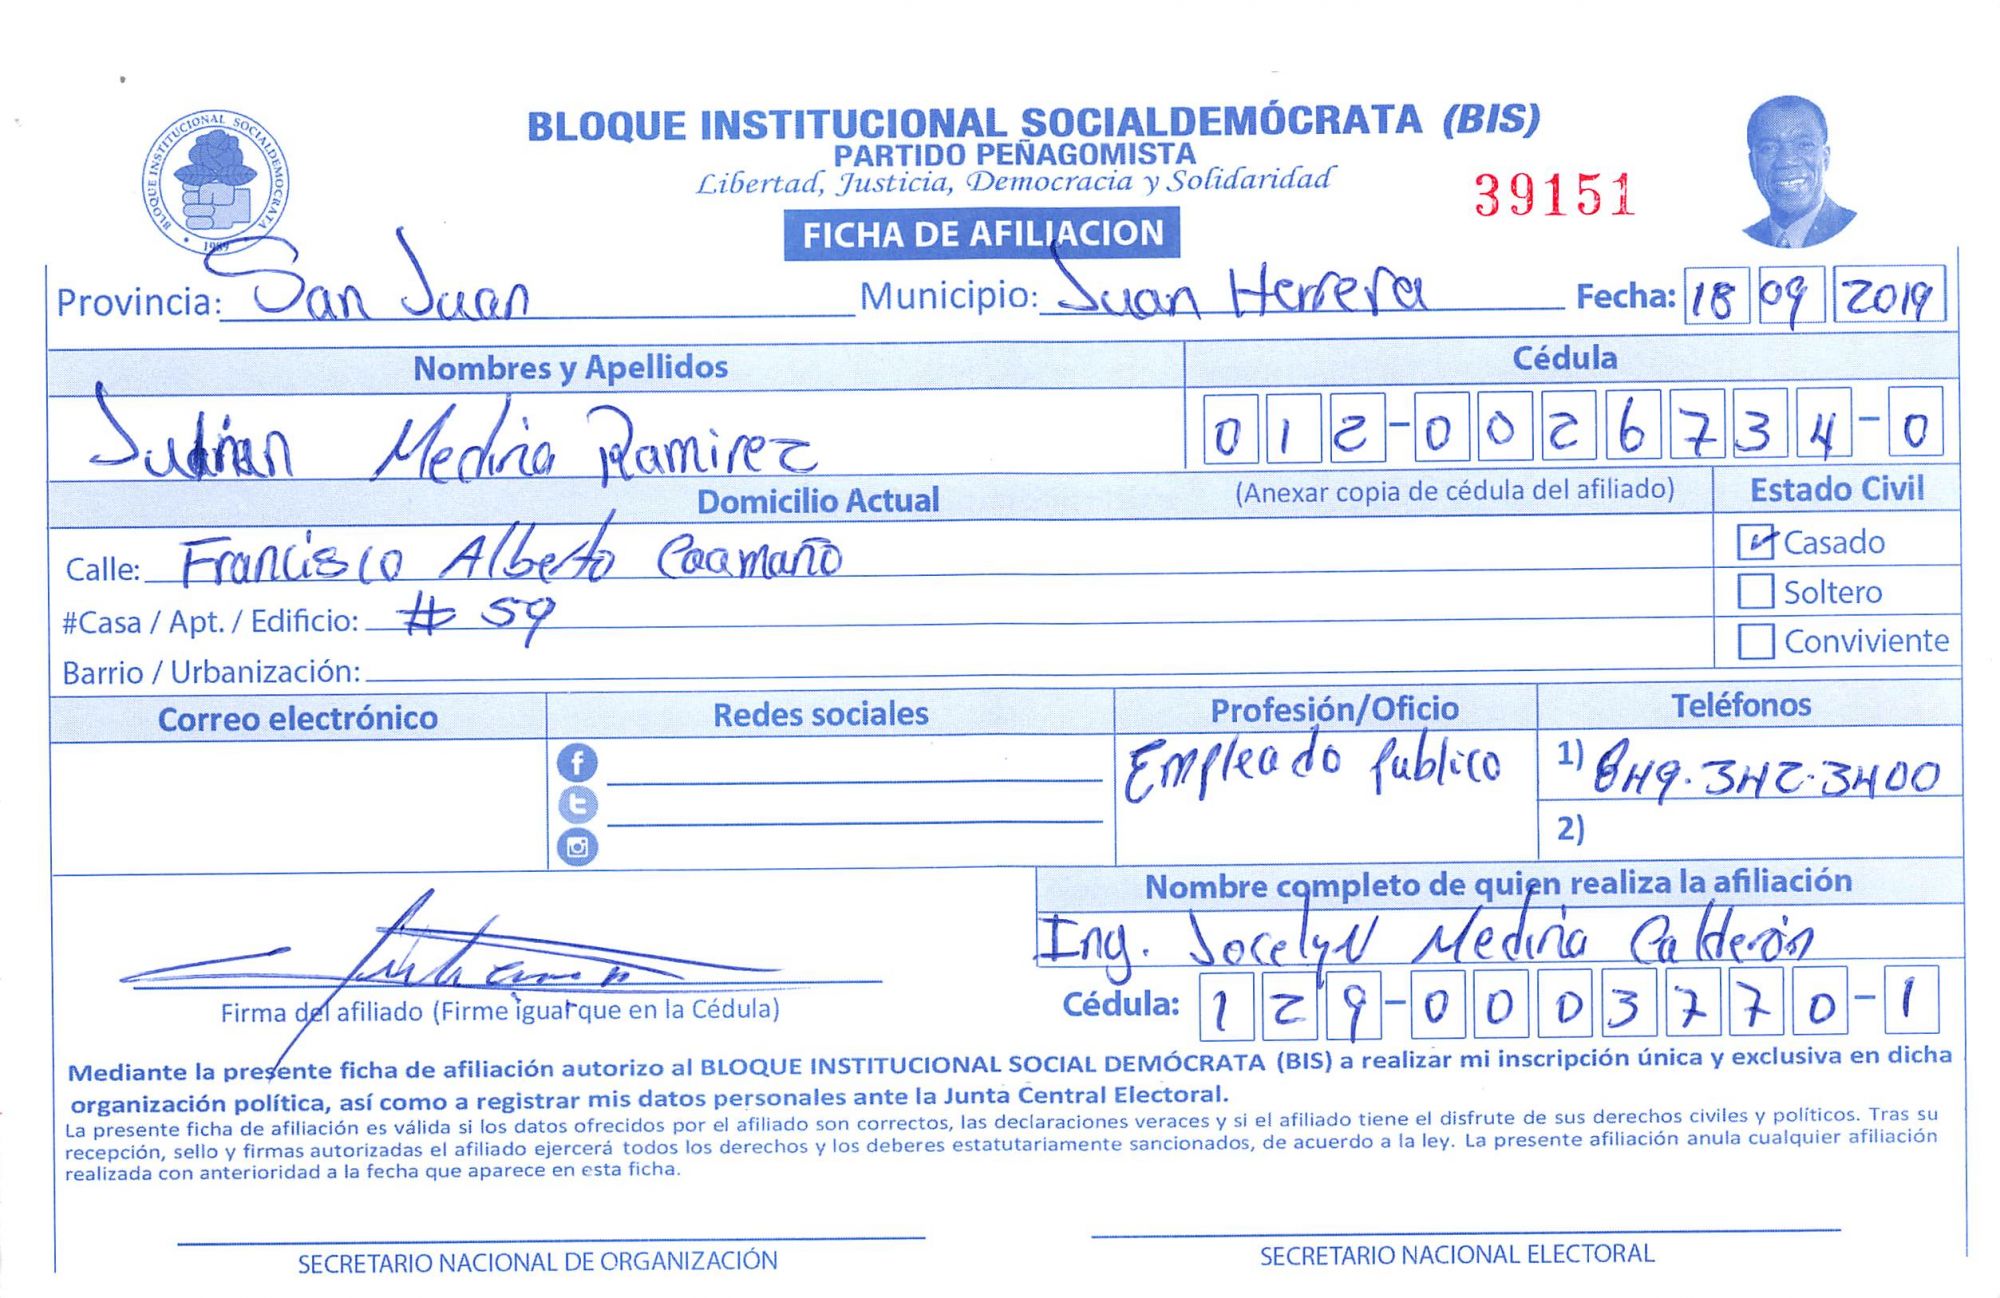 BLOQUE INSTITUCIONAL SOCIALDEMOCRATA
1989
BLOQUE INSTITUCIONAL SOCIALDEMÓCRATA (BIS)
PARTIDO PEÑAGOMISTA
Libertad, Justicia, Democracia y Solidaridad
39151
FICHA DE AFILIACION
Provincia: San Juan Municipio: Juan Herrera Fecha: 18 09 2019
Nombres y Apellidos Cédula
Julián Medina Ramirez 012-0026734-0
Domicilio Actual (Anexar copia de cédula del afiliado) Estado Civil
Calle: Francisco Alberto Caamaño Casado
#Casa / Apt. / Edificio: # 59 Soltero
Barrio / Urbanización: Conviviente
Correo electrónico Redes sociales Profesión/Oficio Teléfonos
Empleado publico 1) 849-342-3400
2)
Nombre completo de quien realiza la afiliación
Ing. Jocelyn Medina Calderón
Firma del afiliado (Firme igual que en la Cédula) Cédula: 129-0003770-1
Mediante la presente ficha de afiliación autorizo al BLOQUE INSTITUCIONAL SOCIAL DEMÓCRATA (BIS) a realizar mi inscripción única y exclusiva en dicha
organización política, así como a registrar mis datos personales ante la Junta Central Electoral.
La presente ficha de afiliación es válida si los datos ofrecidos por el afiliado son correctos, las declaraciones veraces y si el afiliado tiene el disfrute de sus derechos civiles y políticos. Tras su
recepción, sello y firmas autorizadas el afiliado ejercerá todos los derechos y los deberes estatutariamente sancionados, de acuerdo a la ley. La presente afiliación anula cualquier afiliación
realizada con anterioridad a la fecha que aparece en esta ficha.
SECRETARIO NACIONAL DE ORGANIZACIÓN SECRETARIO NACIONAL ELECTORAL